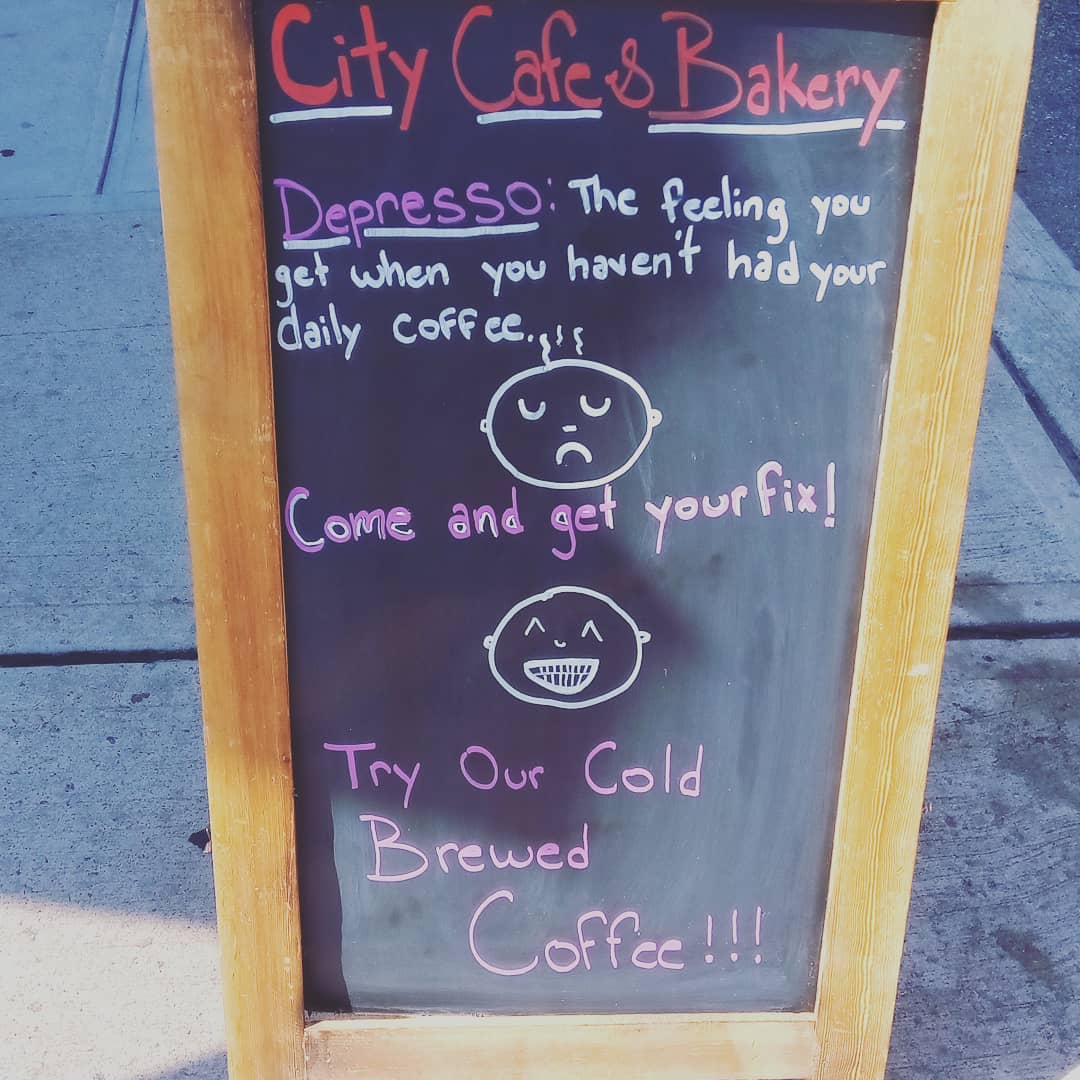 City Cafe & Bakery
Depresso: The feeling you
get when you haven't had your
daily coffee...
Come and get your fix!
Try Our Cold
Brewed
Coffee!!!